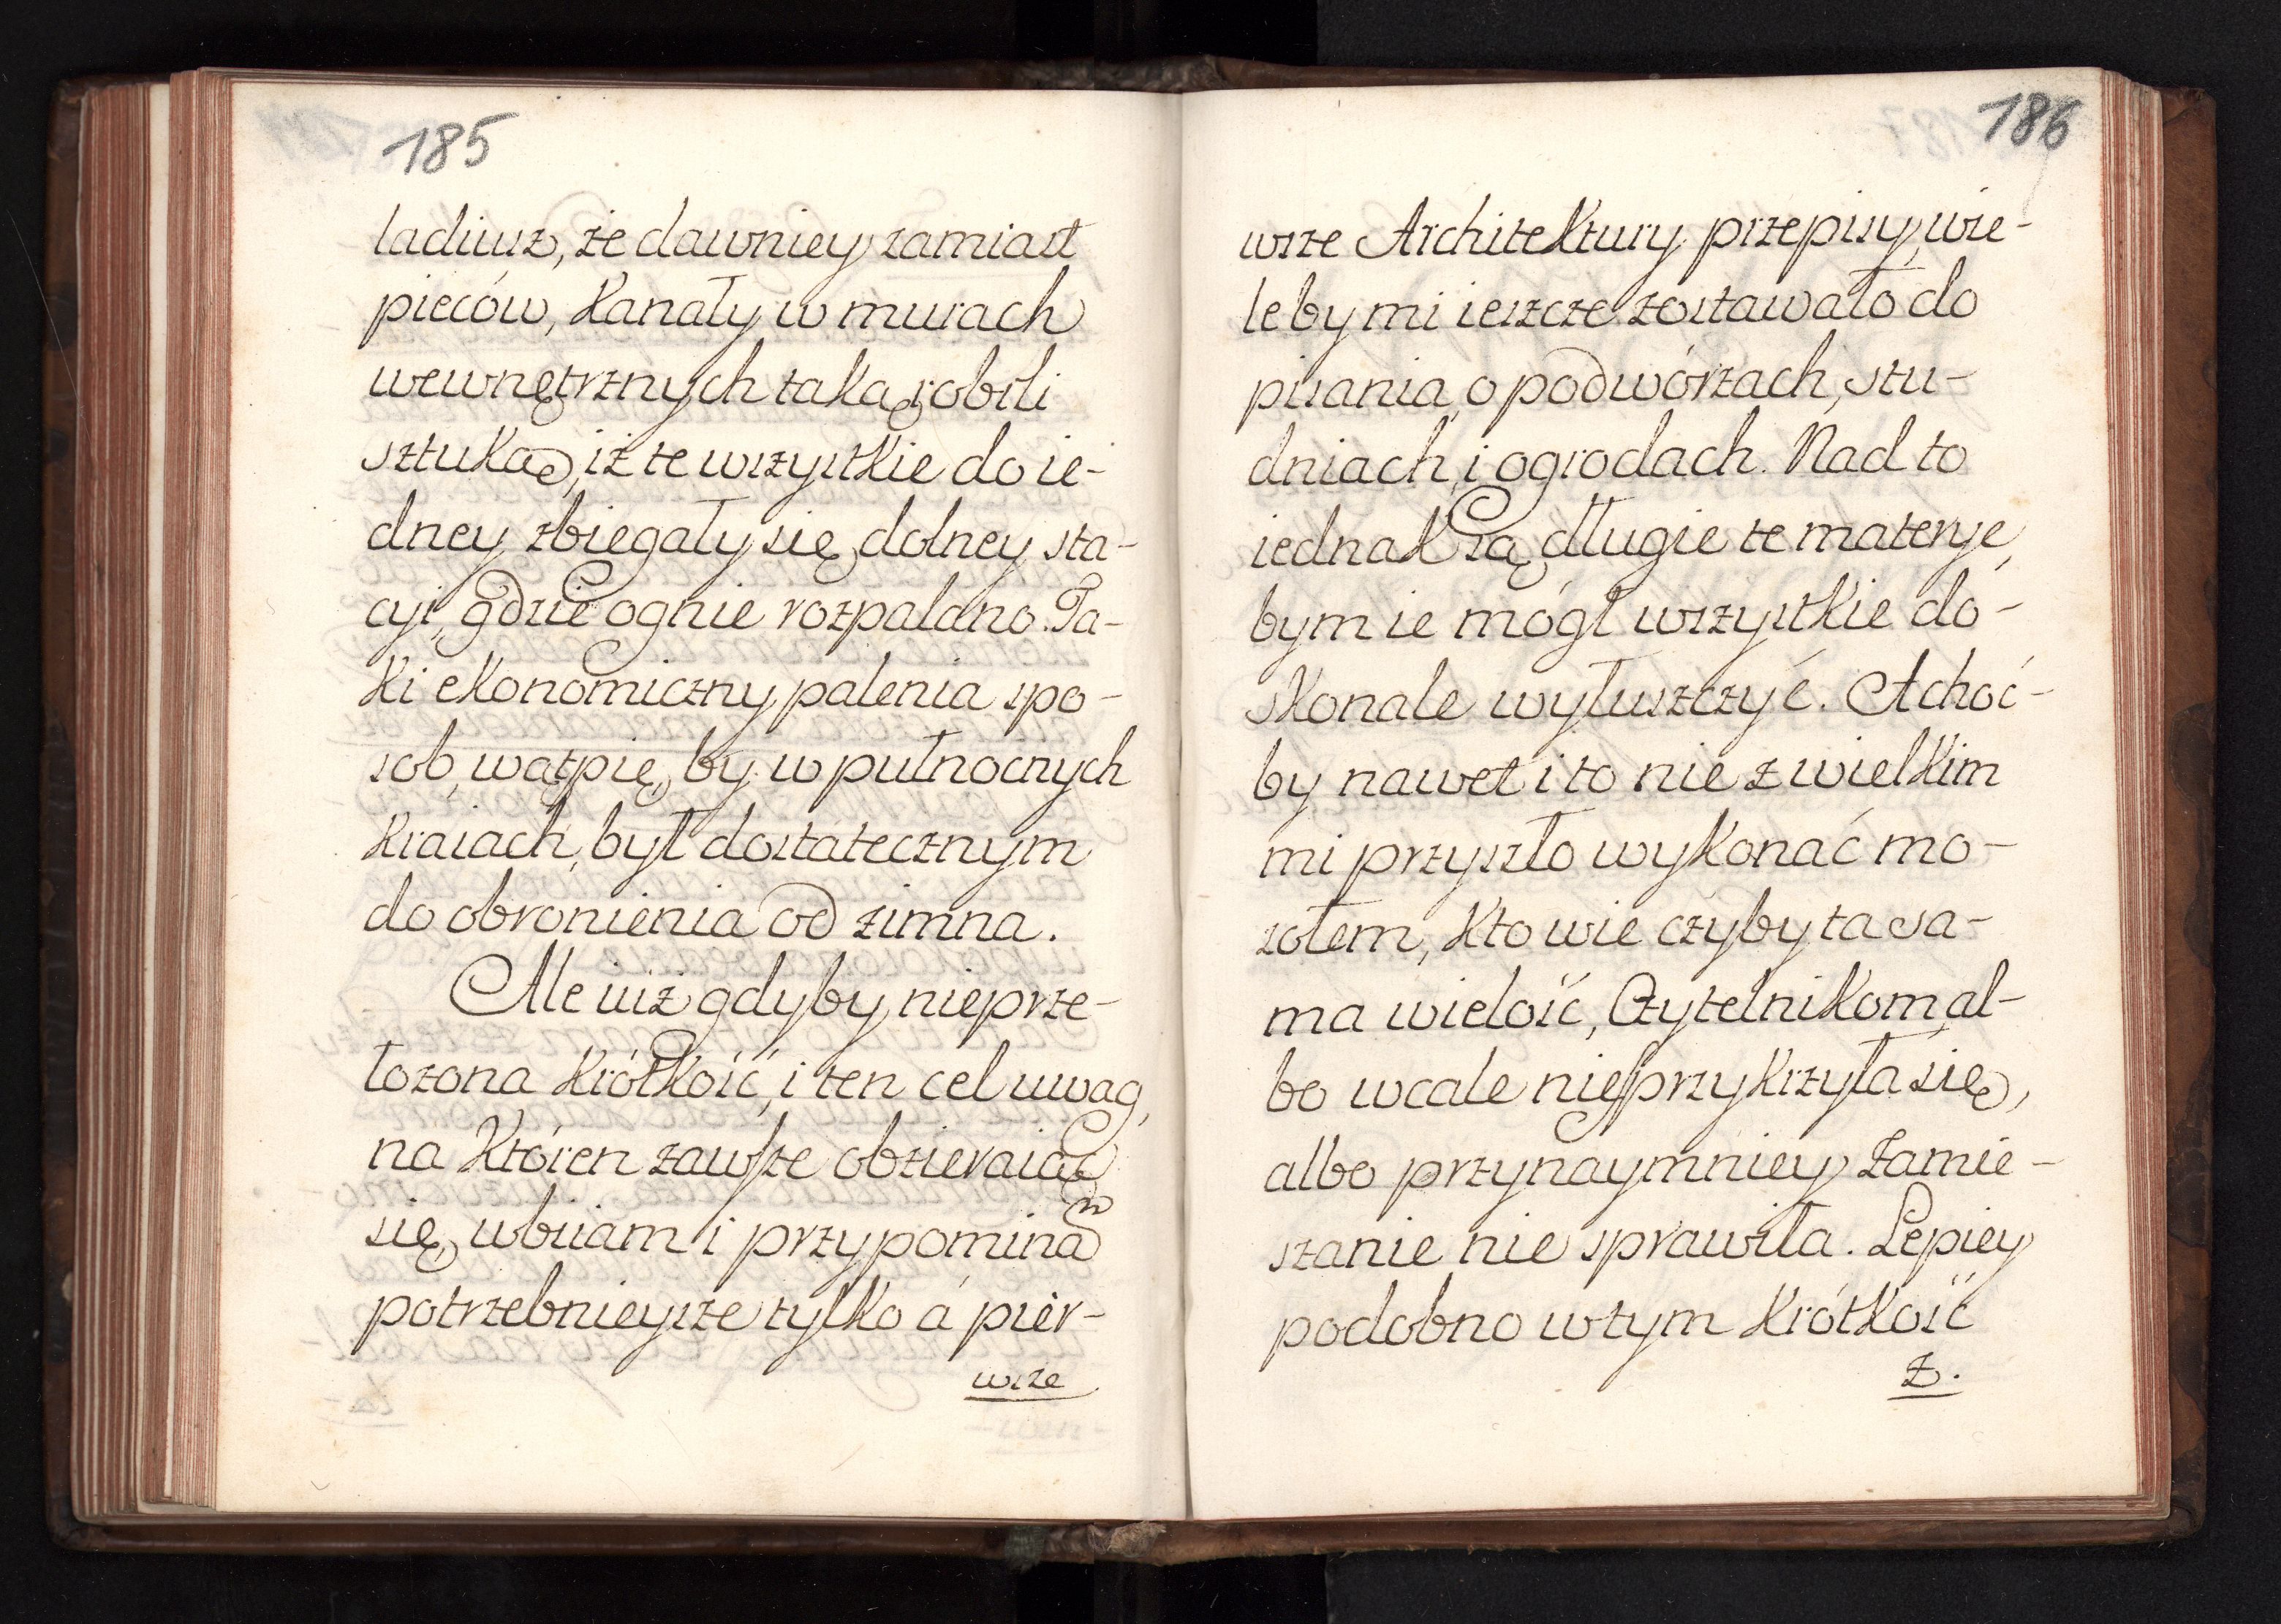 185
ladiusz, że dawniey zamiast
pieców, Kanały w murach
wewnętrznych taką robili
sztuką, iż te wszystkie do ie-
dney zbiegały się dolney sta-
cyi, gdzie ognie rozpalano. Ta-
Ki eKonomiczny palenia spo-
sob, wątpię, by w pułnocnych
Kraiach, był dostatecznym
do obronienia od zimna.
Ale iuż gdyby nieprze-
łożona KrótKość, i ten cel uwag,
na Któren zawsze obzieraiąc
się, wbiiam i przypominam
potrzebnieysze tylKo á pier-
wsze
186
wsze ArchiteKtury przepisy, wie-
le by mi ieszcze zostawało do
pisania, o podwórzach, stu-
dniach, i ogrodach. Nad to
iednaK są długie te materye,
bym ie mógł wszystKie do-
sKonale wyłuszczyć. A choć-
by nawet i to nie z wielKim
mi przyszło wyKonać mo-
zołem, Kto wie czyby ta sa-
ma wielość, CzytelniKom, al-
bo wcale nieprzyKrzyła się,
albo przynaymniey zamie-
szanie nie sprawiła. Lepiey
podobno w tym KrótKość
z.